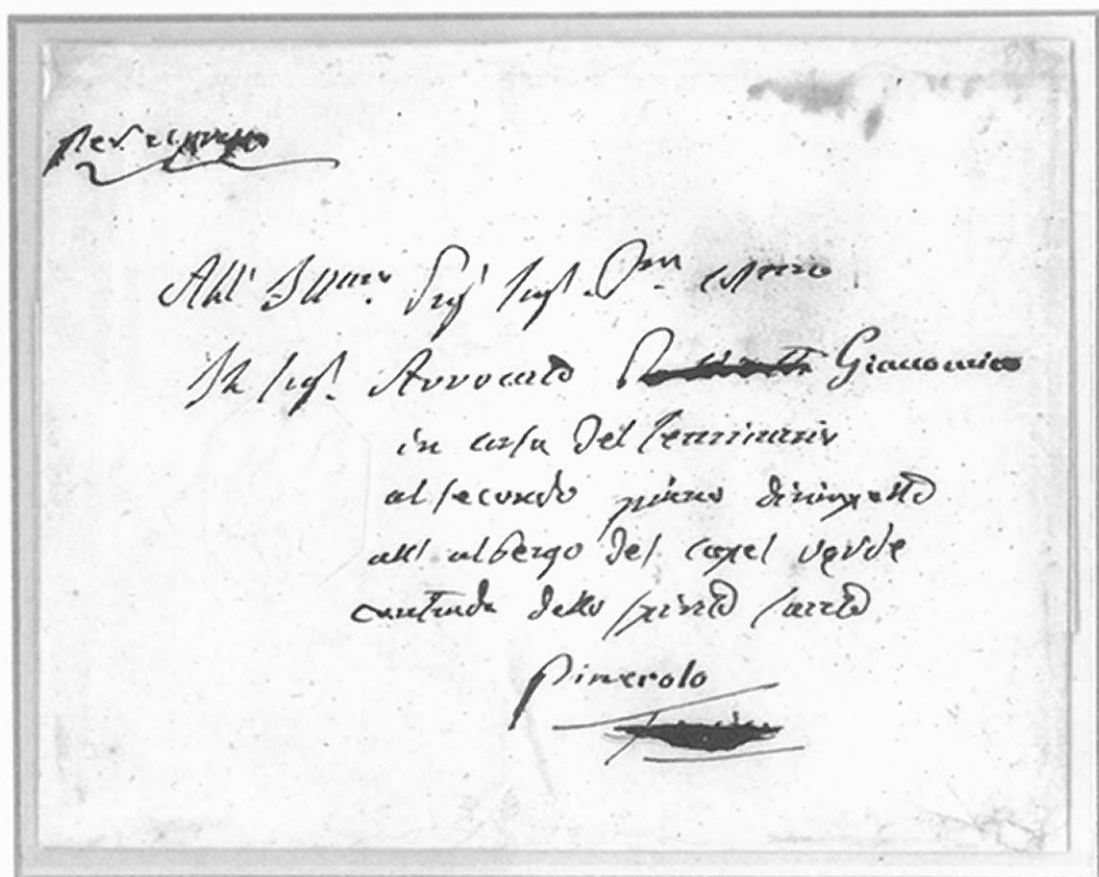 per espresso
All' Ill.mo Sig.r Sig.r P.ron
Il Sig.r Avvocato Giacomino
in casa del seminario
al secondo piano dirimpetto
all albergo del capel verde
contrada dello spirito santo
Pinerolo